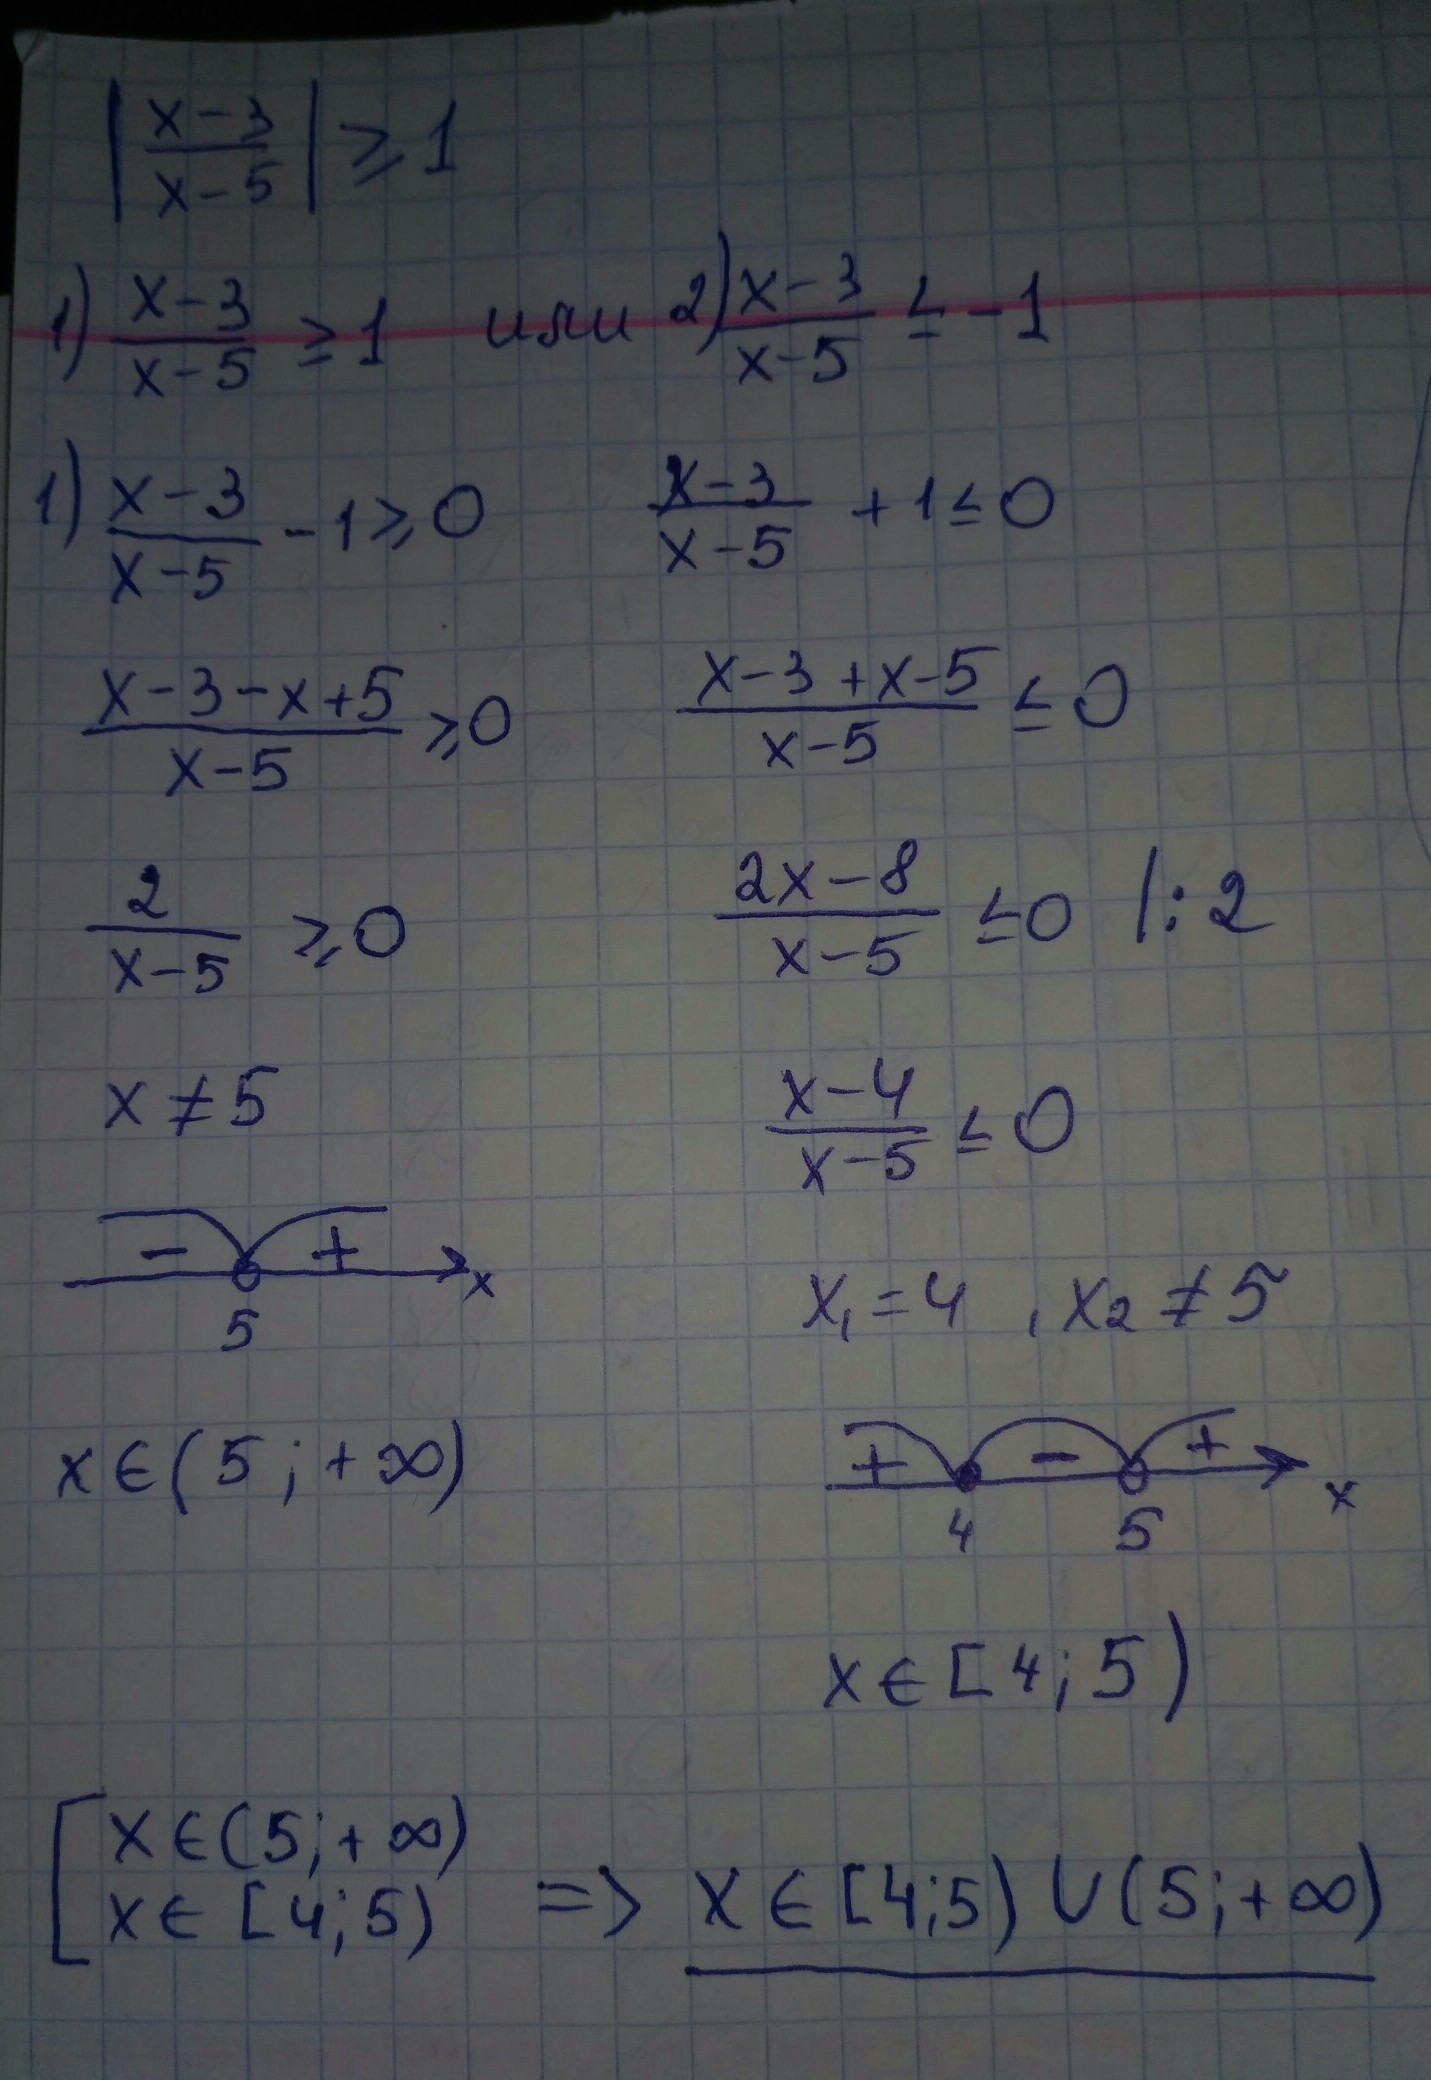 |x-3/x-5| ⩾ 1
1) x-3/x-5 ≥ 1 или 2) x-3/x-5 ≤ -1
1) x-3/x-5 - 1 ⩾ 0 x-3/x-5 + 1 ≤ 0
x-3-x+5/x-5 ⩾ 0 x-3+x-5/x-5 ≤ 0
2/x-5 ⩾ 0 2x-8/x-5 ≤ 0 |:2
x ≠ 5 x-4/x-5 ≤ 0
- + x
5
x₁ = 4 , x₂ ≠ 5
x ∈ (5; +∞)
+ - + x
4 5
x ∈ [4; 5)
[ x ∈ (5; +∞)
x ∈ [4; 5) => x ∈ [4;5) ∪ (5; +∞)